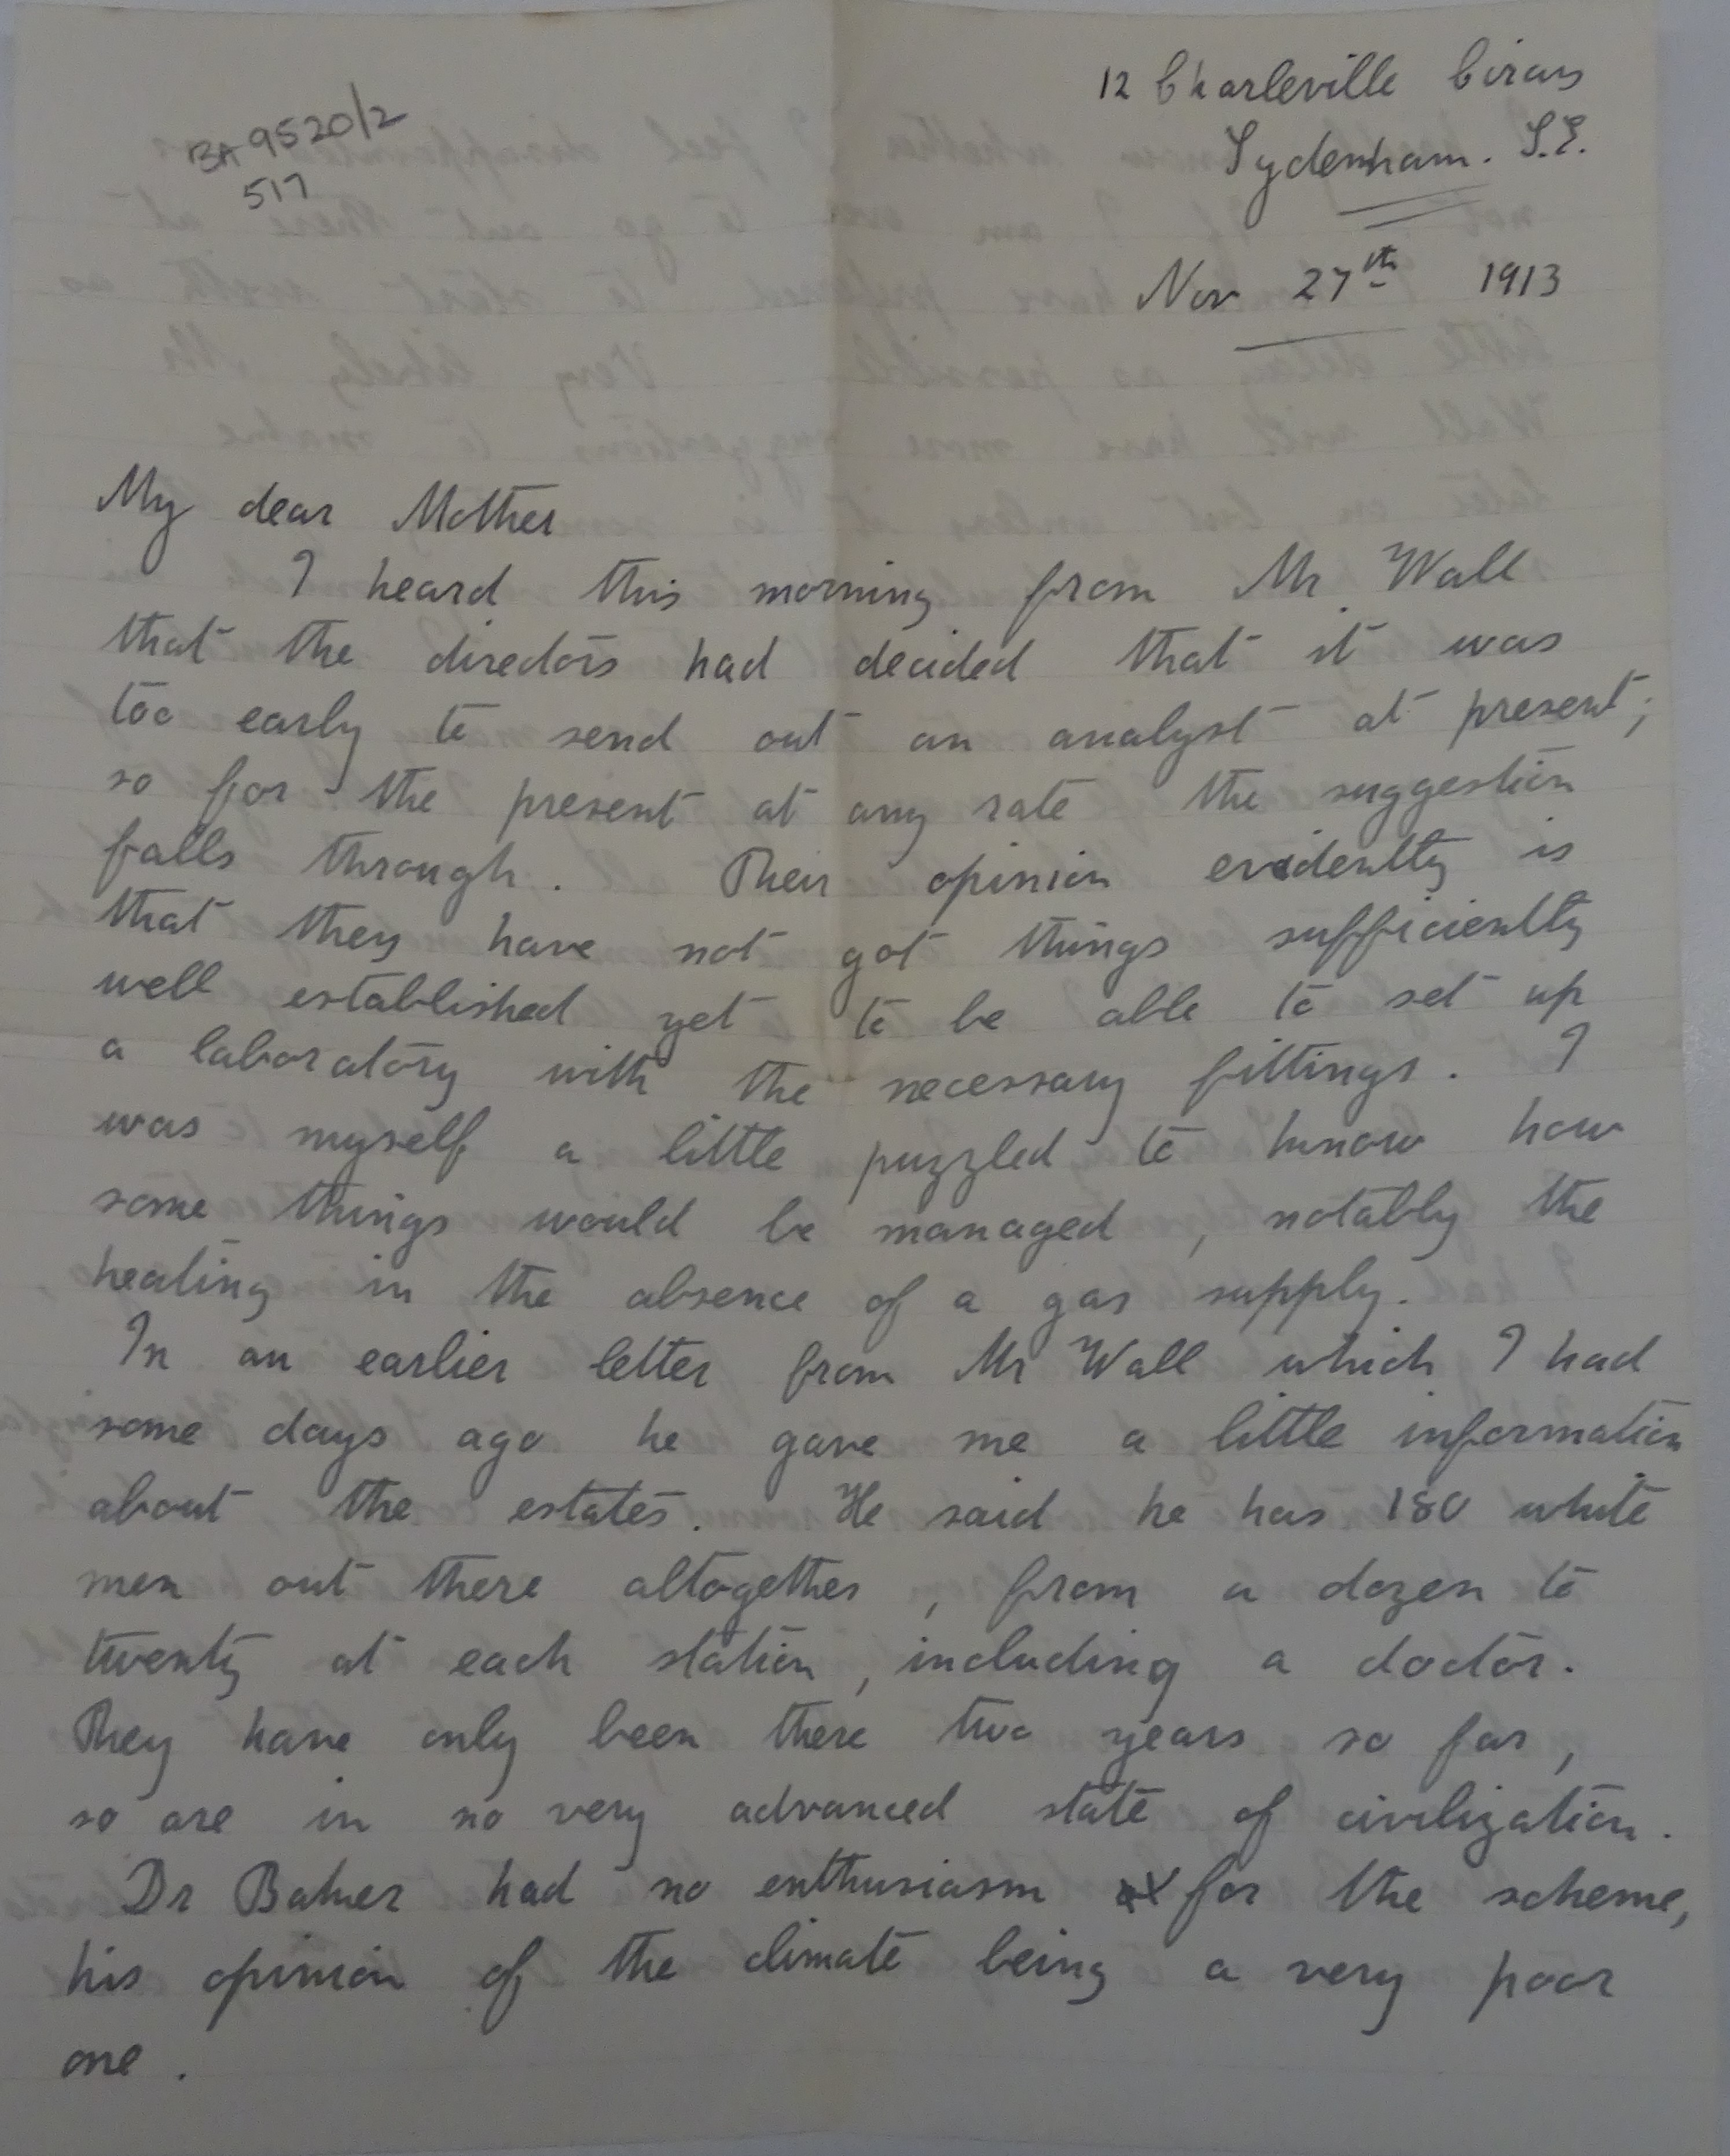 BA 9520/2
517
12 Charleville Circus
Sydenham. S.E.
Nov 27th 1913
My dear Mother
I heard this morning from Mr Wall
that the directors had decided that it was
too early to send out an analyst at present;
so for the present at any rate the suggestion
falls through. Their opinion evidently is
that they have not got things sufficiently
well established yet to be able to set up
a laboratory with the necessary fittings. I
was myself a little puzzled to know how
some things would be managed, notably the
heating in the absence of a gas supply.
In an earlier letter from Mr Wall which I had
some days ago he gave me a little information
about the estates. He said he has 180 white
men out there altogether, from a dozen to
twenty at each station, including a doctor.
They have only been there two years so far,
so are in no very advanced state of civilization.
Dr Baker had no enthusiasm for the scheme,
his opinion of the climate being a very poor
one.